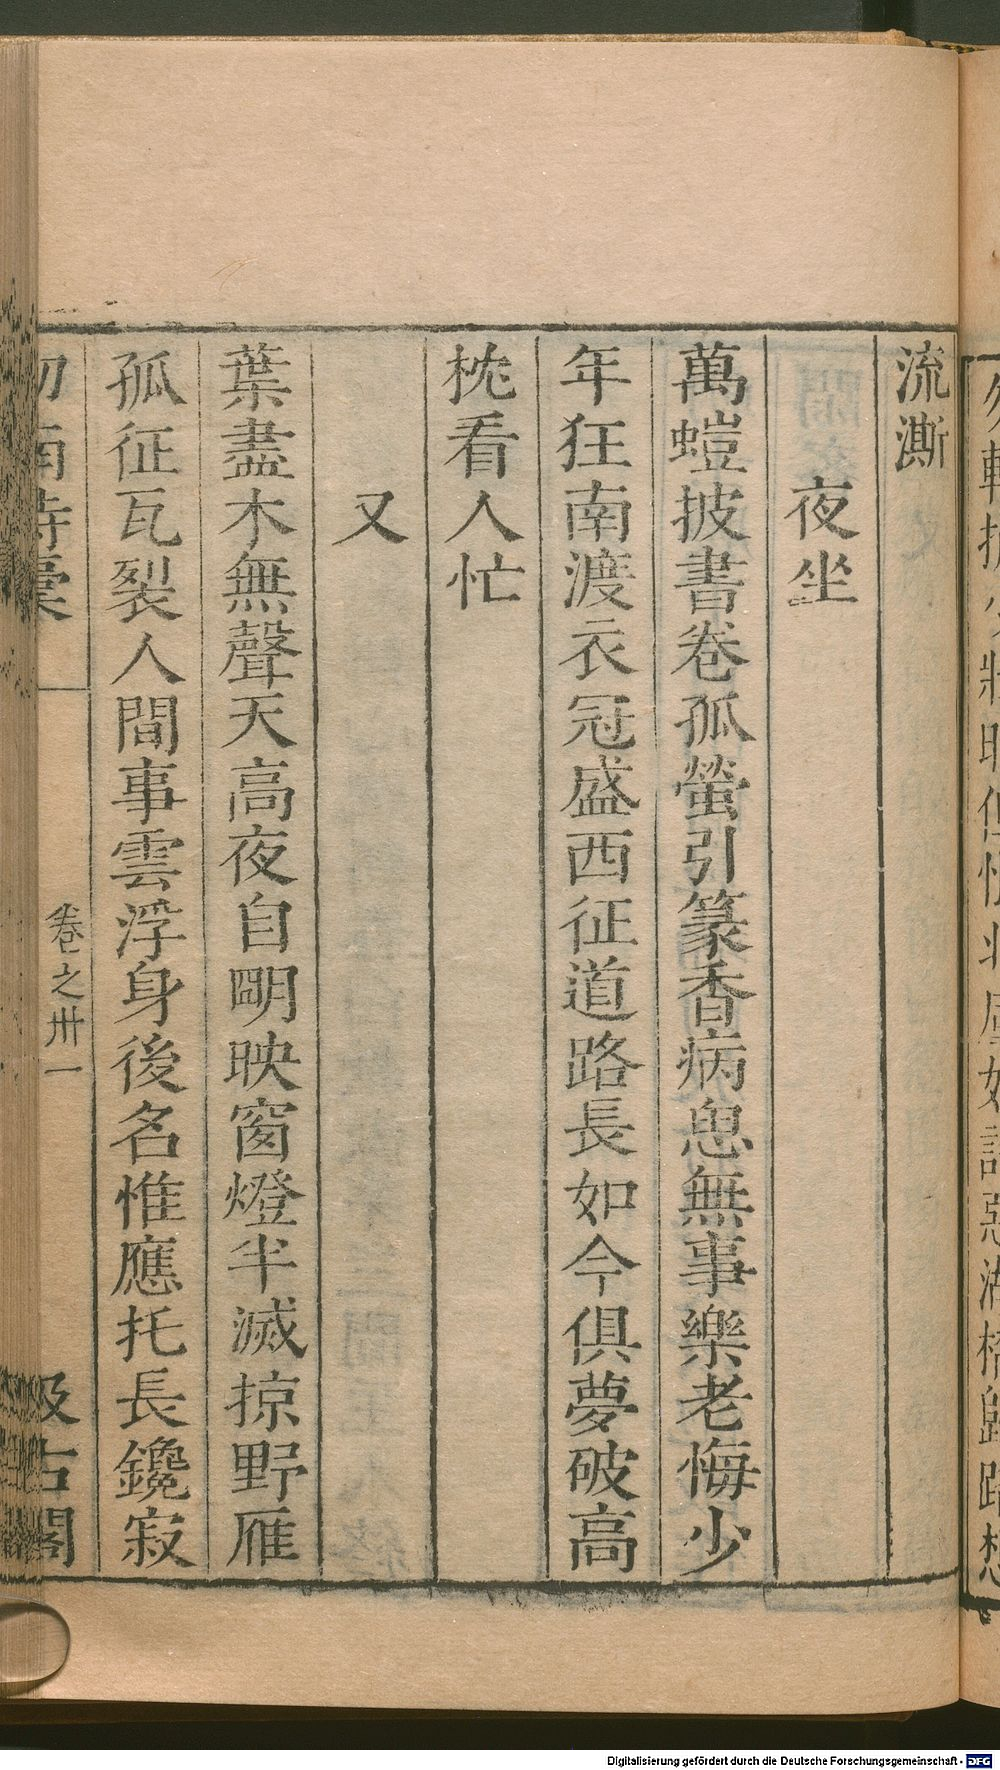 流澌
夜坐
萬螘披書卷孤螢引篆香病思無事樂老悔少
年狂南渡衣冠盛西征道路長如今俱夢破高
枕看人忙
又
葉盡木無聲天高夜自明映窗燈半滅掠野雁
孤征瓦裂人間事雲浮身後名惟應托長鑱寂
劒南詩稾
卷之卅一
汲古閣
Digitalisierung gefördert durch die Deutsche Forschungsgemeinschaft - DFG